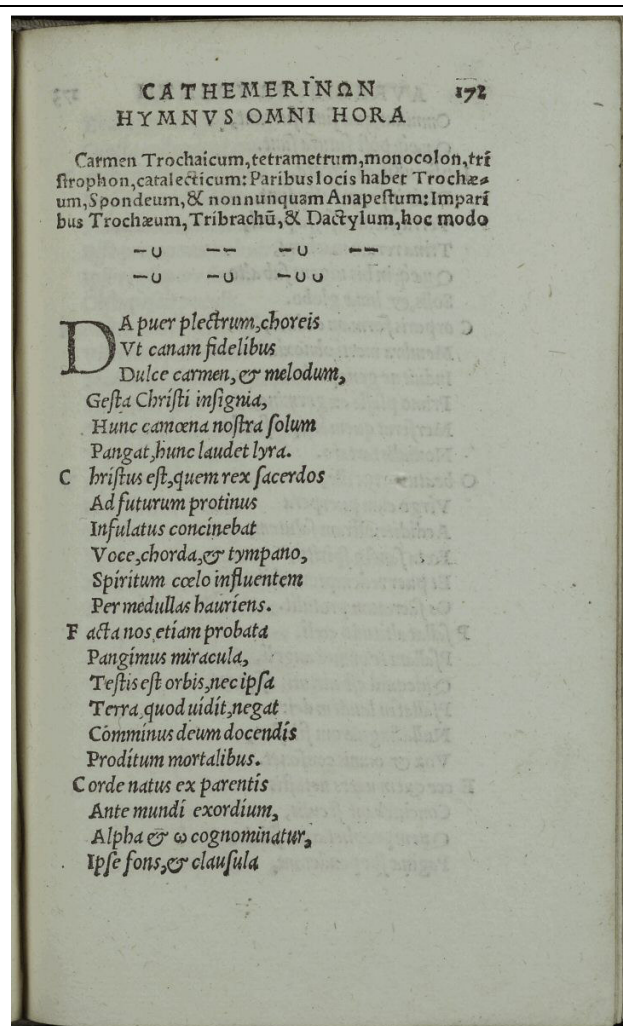 CATHEMERINΩN 172
HYMNVS OMNI HORA
Carmen Trochaicum,tetrametrum,monocolon,trī
ſtrophon,catalecticum:Paribus locis habet Trochæ⸗
um,Spondeum,& nonnunquam Anapeſtum:Impari
bus Trochæum,Tribrachū,& Dactylum,hoc modo
–∪ –– –∪ ––
–∪ –∪ –∪∪
DA puer plectrum,choreis
Vt canam fidelibus
Dulce carmen, & melodum,
Geſta Chriſti inſignia,
Hunc camœna noſtra ſolum
Pangat,hunc laudet lyra.
C hriſtus eſt,quem rex ſacerdos
Ad futurum protinus
Infulatus concinebat
Voce,chorda,& tympano,
Spiritum cœlo influentem
Per medullas hauriens.
F acta nos etiam probata
Pangimus miracula,
Teſtis eſt orbis,nec ipſa
Terra quod uidit,negat
Comminus deum docendis
Proditum mortalibus.
C orde natus ex parentis
Ante mundi exordium,
Alpha & ω cognominatur,
Ipſe fons,& clauſula